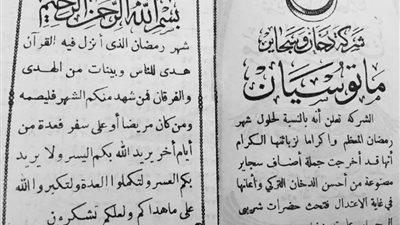 شركة دخان وسجاير
ماتوسيان
الشركة تعلن أنه بالنسبة لحلول شهر
رمضان المعظم واكراما لزبائنها الكرام
أنها قد أخرجت جملة أصناف سجاير
مصنوعة من أحسن الدخان التركي وأثمانها
في غاية الاعتدال فتحث حضرات شريبي
بسم الله الرحمن الرحيم
شهر رمضان الذى أنزل فيه القرآن
هدى للناس وبينات من الهدى
والفرقان فمن شهد منكم الشهر فليصمه
ومن كان مريضا أو على سفر فعدة من
أيام أخر يريد الله بكم اليسر ولا يريد
بكم العسر ولتكملوا العدة ولتكبروا الله
على ماهداكم ولعلكم تشكرون